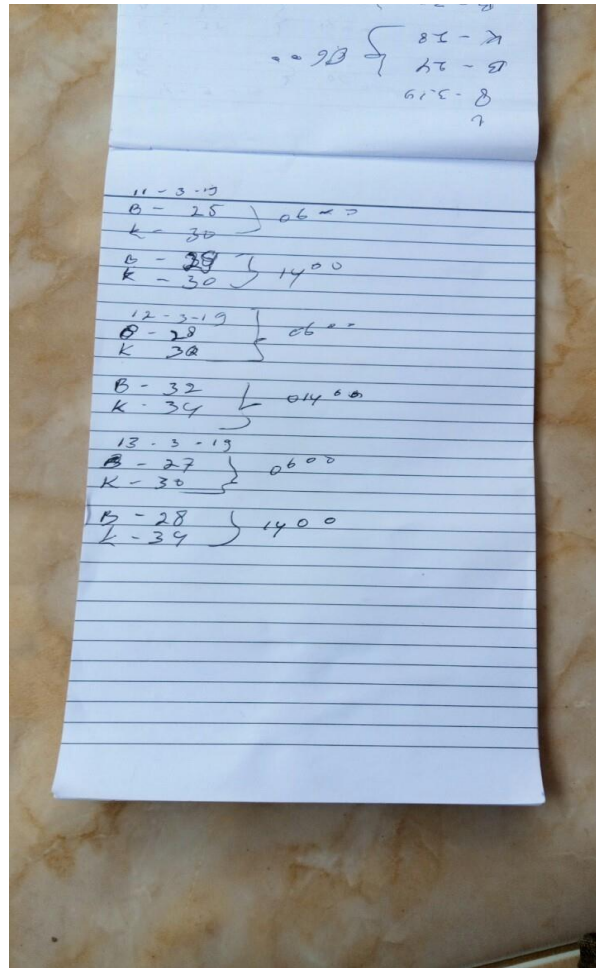 K - 28
B - 24 } 06 00
8-3-19
11-3-19
B - 25
K - 30 } 06 00
B -
K - 30 } 14 00
12-3-19
B - 28
K 30 } 06 00
B - 32
K - 34 } 014 00
13-3-19
B - 27
K - 30 } 06 00
B - 28
K - 34 } 14 00